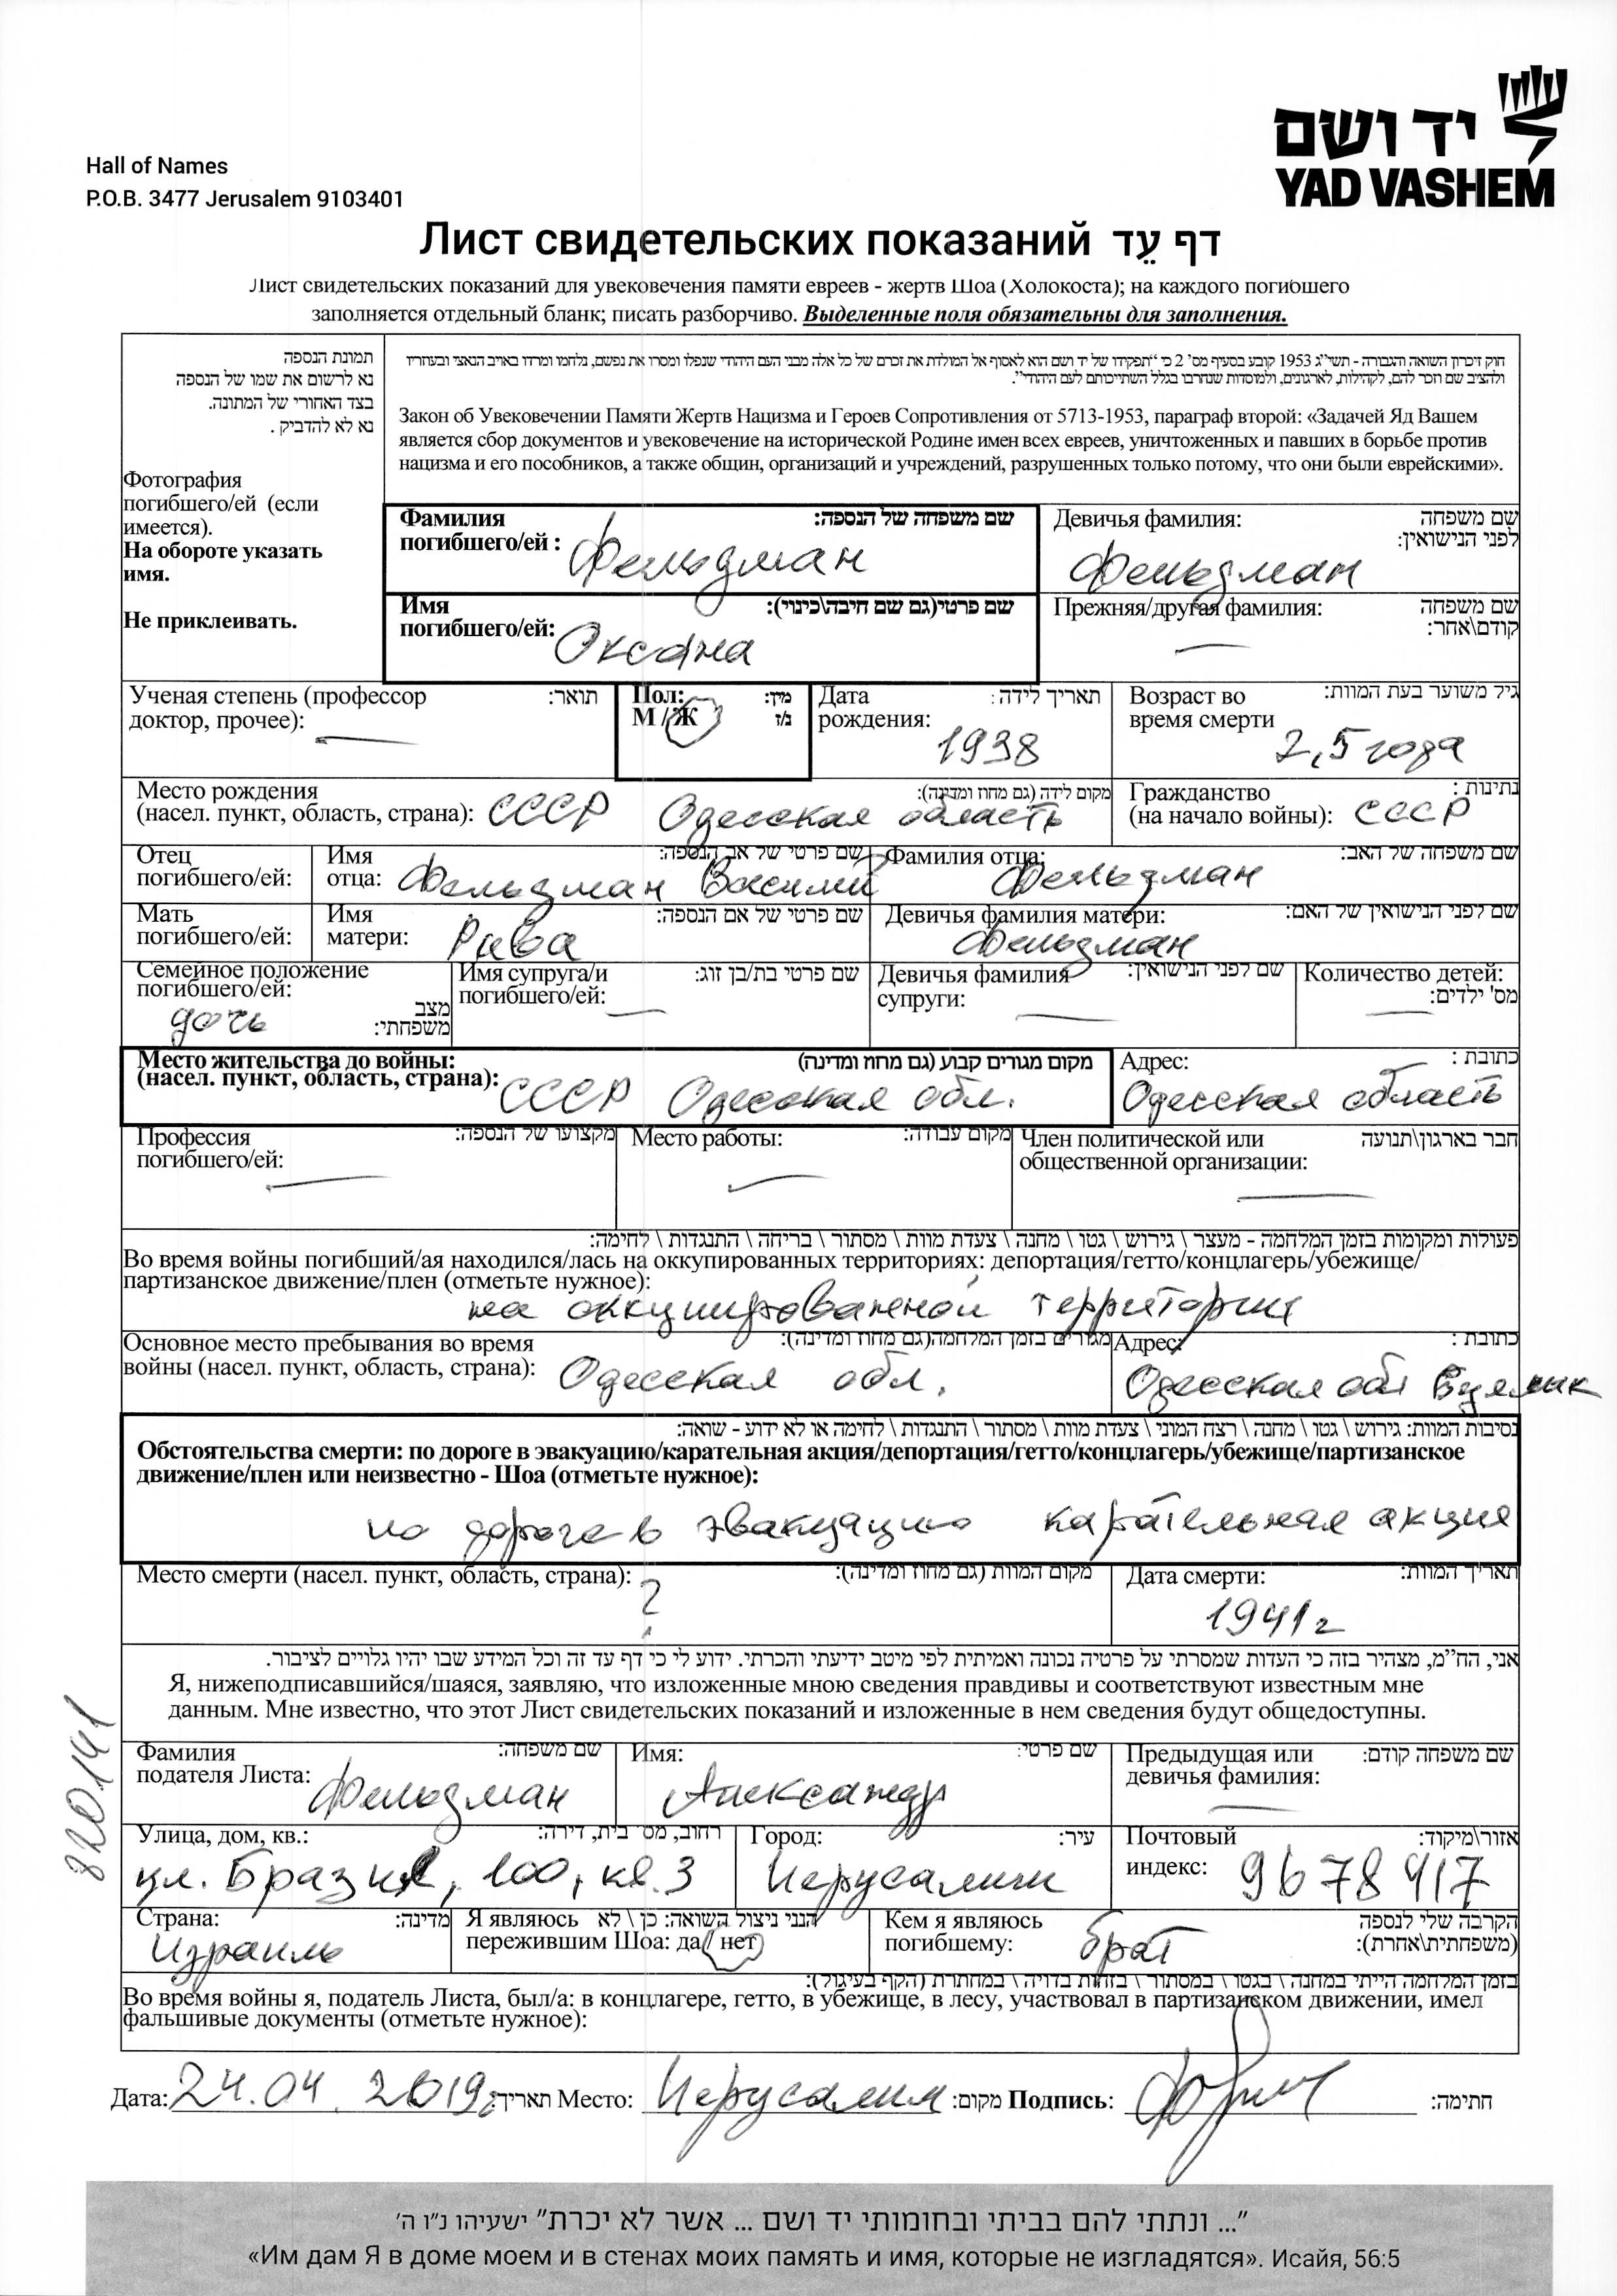 יד ושם
YAD VASHEM
Hall of Names
P.O.B. 3477 Jerusalem 9103401
Лист свидетельских показаний דף עֵד
Лист свидетельских показаний для увековечения памяти евреев - жертв Шоа (Холокоста); на каждого погибшего
заполняется отдельный бланк; писать разборчиво. Выделенные поля обязательны для заполнения.
תמונת הנספה
נא לרשום את שמו של הנספה
בצד האחורי של המתונה.
נא לא להדביק .
Фотография
погибшего/ей (если
имеется).
На обороте указать
имя.
Не приклеивать.
חוק זיכרון השואה והגבורה - תשי"ג 1953 קובע בסעיף מס' 2 כי "תפקידו של יד ושם הוא לאסוף אל המולדת את זכרם של כל אלה מבני העם היהודי שנפלו ומסרו את נפשם, נלחמו ומרדו באויב הנאצי ובעוזריו
ולהציב שם וזכר להם, לקהילות, לארגונים, ולמוסדות שנחרבו בגלל השתייכותם לעם היהודי".
Закон об Увековечении Памяти Жертв Нацизма и Героев Сопротивления от 5713-1953, параграф второй: «Задачей Яд Вашем
является сбор документов и увековечение на исторической Родине имен всех евреев, уничтоженных и павших в борьбе против
нацизма и его пособников, а также общин, организаций и учреждений, разрушенных только потому, что они были еврейскими».
Фамилия שם משפחה של הנספה:
погибшего/ей : Фельдман
Девичья фамилия: שם משפחה
לפני הנישואין:
Фельдман
Имя שם פרטי(גם שם חיבה\כינוי):
погибшего/ей: Оксана
Прежняя/другая фамилия: שם משפחה
קודם\אחר:
—
Ученая степень (профессор תואר:
доктор, прочее): —
Пол: מין:
М / Ж ז/נ
Дата תאריך לידה :
рождения: 1938
Возраст во גיל משוער בעת המוות:
время смерти 2,5 года
Место рождения מקום לידה (גם מחוז ומדינה):
(насел. пункт, область, страна): СССР Одесская область
Гражданство נתינות :
(на начало войны): СССР
Отец
погибшего/ей:
Имя שם פרטי של אב הנספה:
отца: Фельдман Василий
Фамилия отца: שם משפחה של האב:
Фельдман
Мать
погибшего/ей:
Имя שם פרטי של אם הנספה:
матери: Рива
Девичья фамилия матери: שם לפני הנישואין של האם:
Фельдман
Семейное положение
погибшего/ей: מצב
дочь משפחתי:
Имя супруга/и שם פרטי בת/בן זוג:
погибшего/ей: —
Девичья фамилия שם לפני הנישואין:
супруги: —
Количество детей:
מס' ילדים:
—
Место жительства до войны: מקום מגורים קבוע (גם מחוז ומדינה)
(насел. пункт, область, страна): СССР Одесская обл.
Адрес: כתובת :
Одесская область
Профессия מקצועו של הנספה:
погибшего/ей: —
Место работы: מקום עבודה:
—
Член политической или חבר בארגון\תנועה
общественной организации: —
פעולות ומקומות בזמן המלחמה - מעצר \ גירוש \ גטו \ מחנה \ צעדת מוות \ מסתור \ בריחה \ התנגדות \ לחימה:
Во время войны погибший/ая находился/лась на оккупированных территориях: депортация/гетто/концлагерь/убежище/
партизанское движение/плен (отметьте нужное):
на оккупированной территории
Основное место пребывания во время מגורים בזמן המלחמה(גם מחוז ומדינה):
войны (насел. пункт, область, страна): Одесская обл.
Адрес: כתובת :
Одесская обл
נסיבות המוות: גירוש \ גטו \ מחנה \ רצח המוני \ צעדת מוות \ מסתור \ התנגדות \ לחימה או לא ידוע - שואה:
Обстоятельства смерти: по дороге в эвакуацию/карательная акция/депортация/гетто/концлагерь/убежище/партизанское
движение/плен или неизвестно - Шоа (отметьте нужное):
по дороге в эвакуацию карательная акция
Место смерти (насел. пункт, область, страна): מקום המוות (גם מחוז ומדינה):
?
Дата смерти: תאריך המוות:
1941 г
אני, הח"מ, מצהיר בזה כי העדות שמסרתי על פרטיה נכונה ואמיתית לפי מיטב ידיעתי והכרתי. ידוע לי כי דף עד זה וכל המידע שבו יהיו גלויים לציבור.
Я, нижеподписавшийся/шаяся, заявляю, что изложенные мною сведения правдивы и соответствуют известным мне
данным. Мне известно, что этот Лист свидетельских показаний и изложенные в нем сведения будут общедоступны.
820141
Фамилия שם משפחה:
подателя Листа: Фельдман
Имя: שם פרטי:
Александр
Предыдущая или שם משפחה קודם:
девичья фамилия:
—
Улица, дом, кв.: רחוב, מס' בית, דירה:
ул. Бразил, 100, кв. 3
Город: עיר:
Иерусалим
Почтовый אזור\מיקוד:
индекс: 9678417
Страна: מדינה:
Израиль
Я являюсь הנני ניצול השואה: כן \ לא
пережившим Шоа: да / нет
Кем я являюсь הקרבה שלי לנספה
погибшему: брат (משפחתית\אחרת):
בזמן המלחמה הייתי במחנה \ בגטו \ במסתור \ בזהות בדויה \ במחתרת (הקף בעיגול):
Во время войны я, податель Листа, был/а: в концлагере, гетто, в убежище, в лесу, участвовал в партизанском движении, имел
фальшивые документы (отметьте нужное):
Дата: 24.04.2019 תאריך: Место: Иерусалим מקום: Подпись: חתימה:
"... ונתתי להם בביתי ובחומותי יד ושם ... אשר לא יכרת" ישעיהו נ"ו ה'
«Им дам Я в доме моем и в стенах моих память и имя, которые не изгладятся». Исайя, 56:5